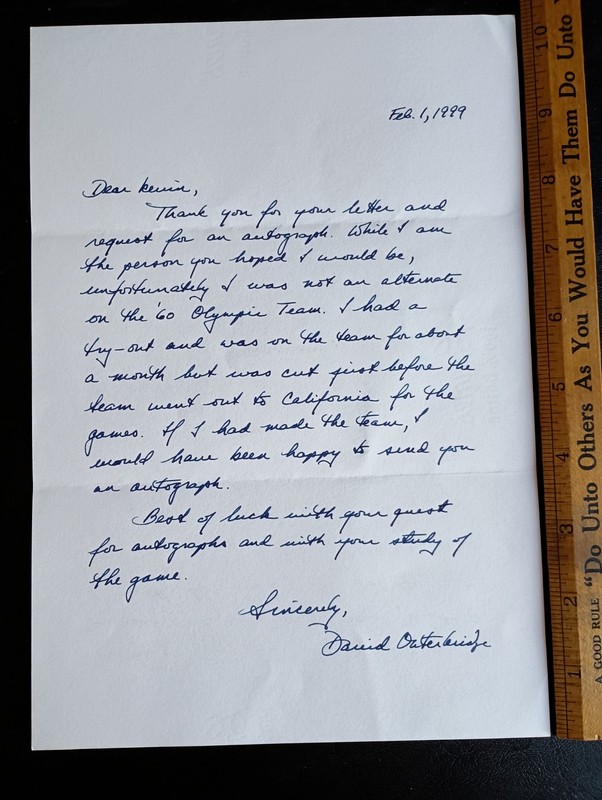 Feb. 1, 1999
Dear Kevin,
Thank you for your letter and
request for an autograph. While I am
the person you hoped I would be,
unfortunately I was not an alternate
on the '60 Olympic Team. I had a
try-out and was on the team for about
a month but was cut just before the
team went out to California for the
games. If I had made the team, I
would have been happy to send you
an autograph.
Best of luck with your quest
for autographs and with your study of
the game.
Sincerely,
David Outerbridge
A GOOD RULE "Do Unto Others As You Would Have Them Do Unto
1 2 3 4 5 6 7 8 9 10